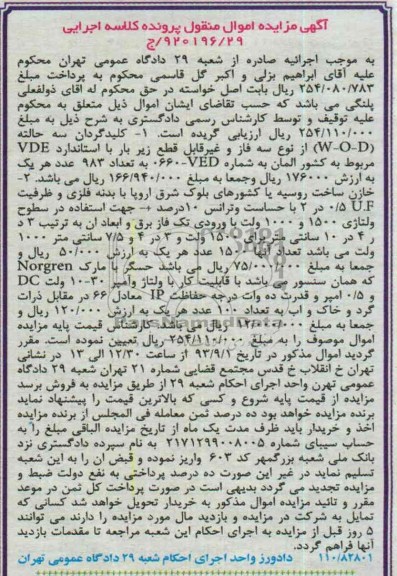 آگهی مزایده اموال منقول پرونده کلاسه اجرایی
۹۲۰۱۹۶/۲۹/ج
به موجب اجرائیه صادره از شعبه ۲۹ دادگاه عمومی تهران محکوم
علیه آقای ابراهیم بزلی و اکبر گل قاسمی محکوم به پرداخت مبلغ
۲۵۴/۰۸۰/۷۸۳ ریال بابت اصل خواسته در حق محکوم له اقای ذولفعلی
پلنگی می باشد که حسب تقاضای ایشان اموال ذیل متعلق به محکوم
علیه توقیف و توسط کارشناس رسمی دادگستری به شرح ذیل به مبلغ
۲۵۴/۱۱۰/۰۰۰ ریال ارزیابی گرده است. ۱- کلیدگردان سه حالته
(W-O-D) از نوع سه فاز و غیرقابل قطع زیر بار با استاندارد VDE
مربوط به کشور المان به شماره VED-۰۶۶۰ به تعداد ۹۸۳ عدد هر یک
به ارزش ۱۷۶۰۰۰ ریال وجمعا به مبلغ ۱۶۶/۹۴۰/۰۰۰ ریال می باشد. ۲-
خازن ساخت روسیه یا کشورهای بلوک شرق اروپا با بدنه فلزی و ظرفیت
U.F ۰/۵ در ۲ با حساست وترانس ۱۰درصد +- جهت استفاده در سطوح
ولتاژی ۱۵۰۰ و ۱۰۰۰ ولت با ورودی تک فاز برق و ابعاد ان به ترتیب ۳ د
ر ۴ در ۱۰ سانتی متر برای ۱۵۰۰ ولت و ۳ در ۴ و ۷/۵ سانتی متر ۱۰۰۰
ولت می باشد تعداد آنها ۱۵۰۰ عدد هر یک به ارزش ۵۰/۰۰۰ ریال و
جمعا به مبلغ ۷۵/۰۰۰/۰۰۰ ریال می باشد حسگر با مارک Norgren
که همان سنسور می باشد با قابلیت کار با ولتاژ وآمپر ۳۰-۱۰ ولت DC
و ۰/۵ امپر و قدرت ده وات درجه حفاظت IP معادل ۶۶ در مقابل ذرات
گرد و خاک و اب به تعداد ۱۰۰ عدد هر یک به ارزش ۱۲۰/۰۰۰ ریال و
جمعا به مبلغ ۱۲/۰۰۰/۰۰۰ ریال می باشد کارشناس قیمت پایه مزایده
اموال موصوف را به مبلغ ۲۵۴/۱۱۰/۰۰۰ ریال تعیین نموده است. مقرر
گردید اموال مذکور در تاریخ ۹۳/۹/۱ از ساعت ۱۲/۳۰ الی ۱۳ در نشانی
تهران خ انقلاب خ قدس مجتمع قضایی شماره ۲۱ تهران شعبه ۲۹ دادگاه
عمومی تهرن واحد اجرای احکام شعبه ۲۹ از طریق مزایده به فروش برسد
مزایده از قیمت پایه شروع و کسی که بالاترین قیمت را پیشنهاد نماید
برنده مزایده خواهد بود ده درصد ثمن معامله فی المجلس از برنده مزایده
اخذ و خریدار باید ظرف مدت یک ماه از تاریخ مزایده الباقی مبلغ را به
حساب سیبای شماره ۲۱۷۱۲۹۹۰۰۸۰۰۵ به نام سپرده دادگستری نزد
بانک ملی شعبه بزرگمهر کد ۶۰۳ واریز نموده و قبض ان را به این شعبه
تسلیم نماید در غیر این صورت ده درصد پرداختی به نفع دولت ضبط و
مزایده تجدید می گردد بدیهی است در صورت پرداخت کل ثمن در موعد
مقرر و تائید مزایده اموال مذکور به خریدار تحویل خواهد شد کسانی که
تمایل به شرکت در مزایده و بازدید مال مورد مزایده را دارند می توانند
۵ روز قبل از مزایده به اجرای احکام این شعبه مراجعه تا مقدمات بازدید
آنها فراهم گردد.
۱۱۰/۸۲۸۰۱ دادورز واحد اجرای احکام شعبه ۲۹ دادگاه عمومی تهران